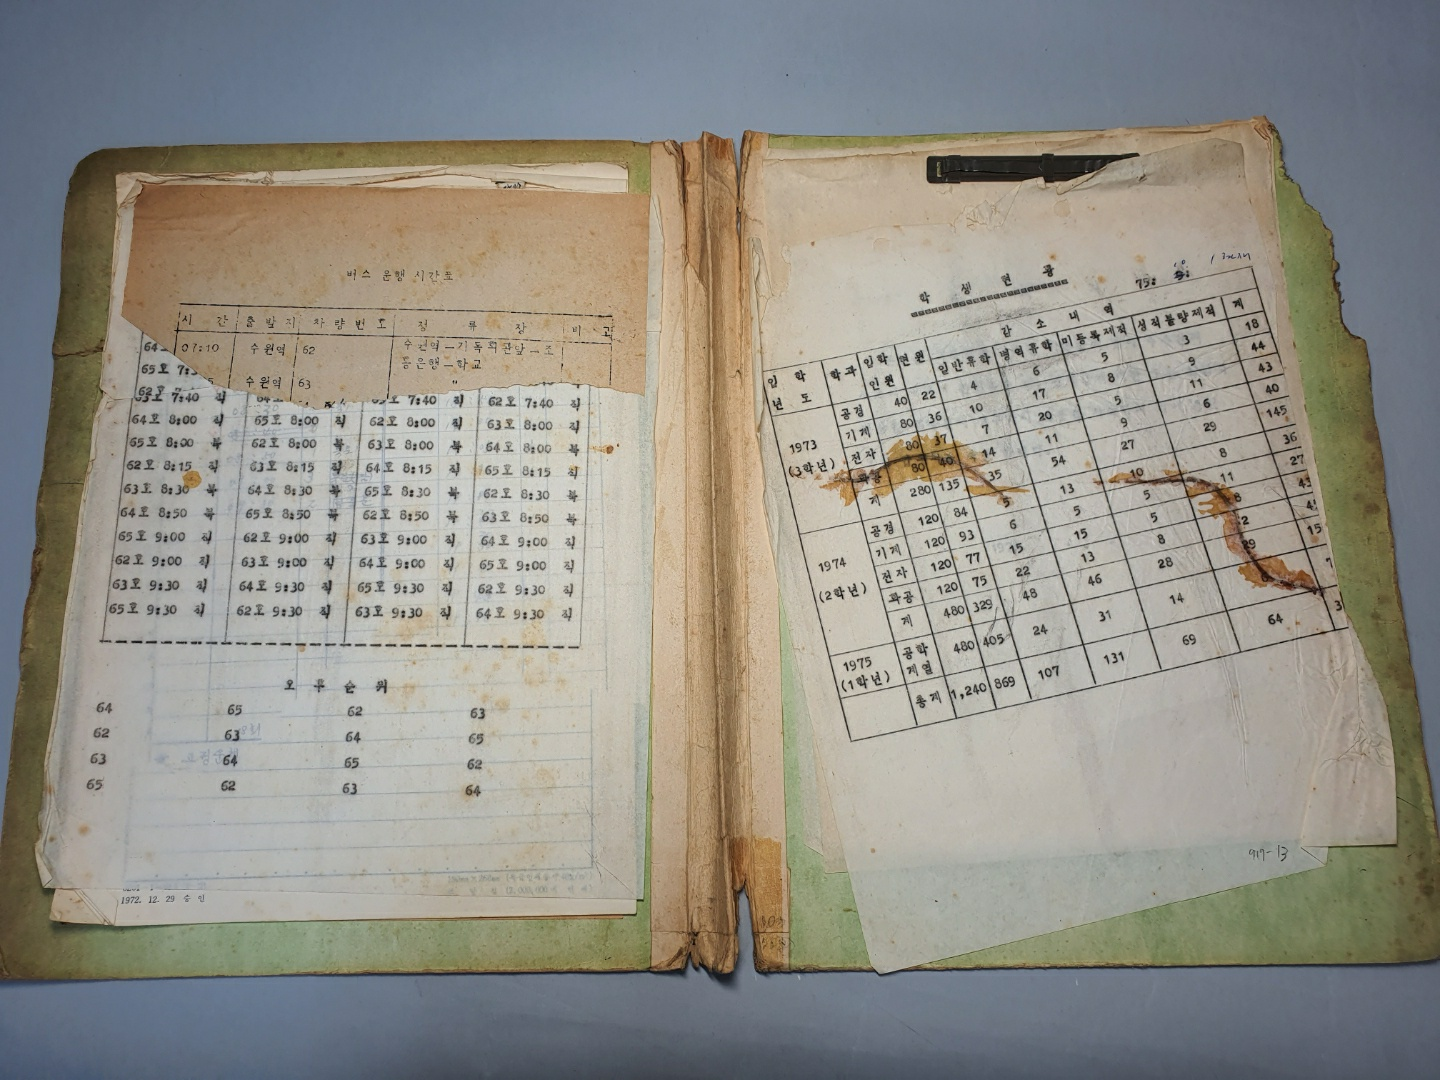 버스 운행 시간표
시 간 출발지 차량번호 정 류 장 비 고
07:10 수원역 62 수원역—기독회관앞—조
흥은행—학교
수원역 63 〃
64
65호 7:3
63호 7:40 직 62호 7:40 직 62호 7:40 직
64호 8:00 직 65호 8:00 직 62호 8:00 직 63호 8:00 직
65호 8:00 북 62호 8:00 북 63호 8:00 북 64호 8:00 북
62호 8:15 직 63호 8:15 직 64호 8:15 직 65호 8:15 직
63호 8:30 북 64호 8:30 북 65호 8:30 북 62호 8:30 북
64호 8:50 북 65호 8:50 북 62호 8:50 북 63호 8:50 북
65호 9:00 직 62호 9:00 직 63호 9:00 직 64호 9:00 직
62호 9:00 직 63호 9:00 직 64호 9:00 직 65호 9:00 직
63호 9:30 직 64호 9:30 직 65호 9:30 직 62호 9:30 직
65호 9:30 직 62호 9:30 직 63호 9:30 직 64호 9:30 직
오 후 순 위
64 65 62 63
62 63 64 65
63 64 65 62
65 62 63 64
1972. 12. 29 승 인
학 생 현 황
75:
입 학 년 도 학과 입학인원 현원 감 소 내 역 계
일반휴학 병역휴학 미등록제적 성적불량제적
1973 (3학년) 공경 40 22 4 6 5 3 18
기계 80 36 10 17 8 9 44
전자 80 37 7 20 5 11 43
화공 80 40 14 11 9 6 40
계 280 135 35 54 27 29 145
1974 (2학년) 공경 120 84 5 13 10 8 36
기계 120 93 6 5 5 11 27
전자 120 77 15 15 5 8 43
화공 120 75 22 13 8
계 480 329 48 46 28 29 15
1975 (1학년) 공학계열 480 405 24 31 14
총계 1,240 869 107 131 69 64 3
917-13